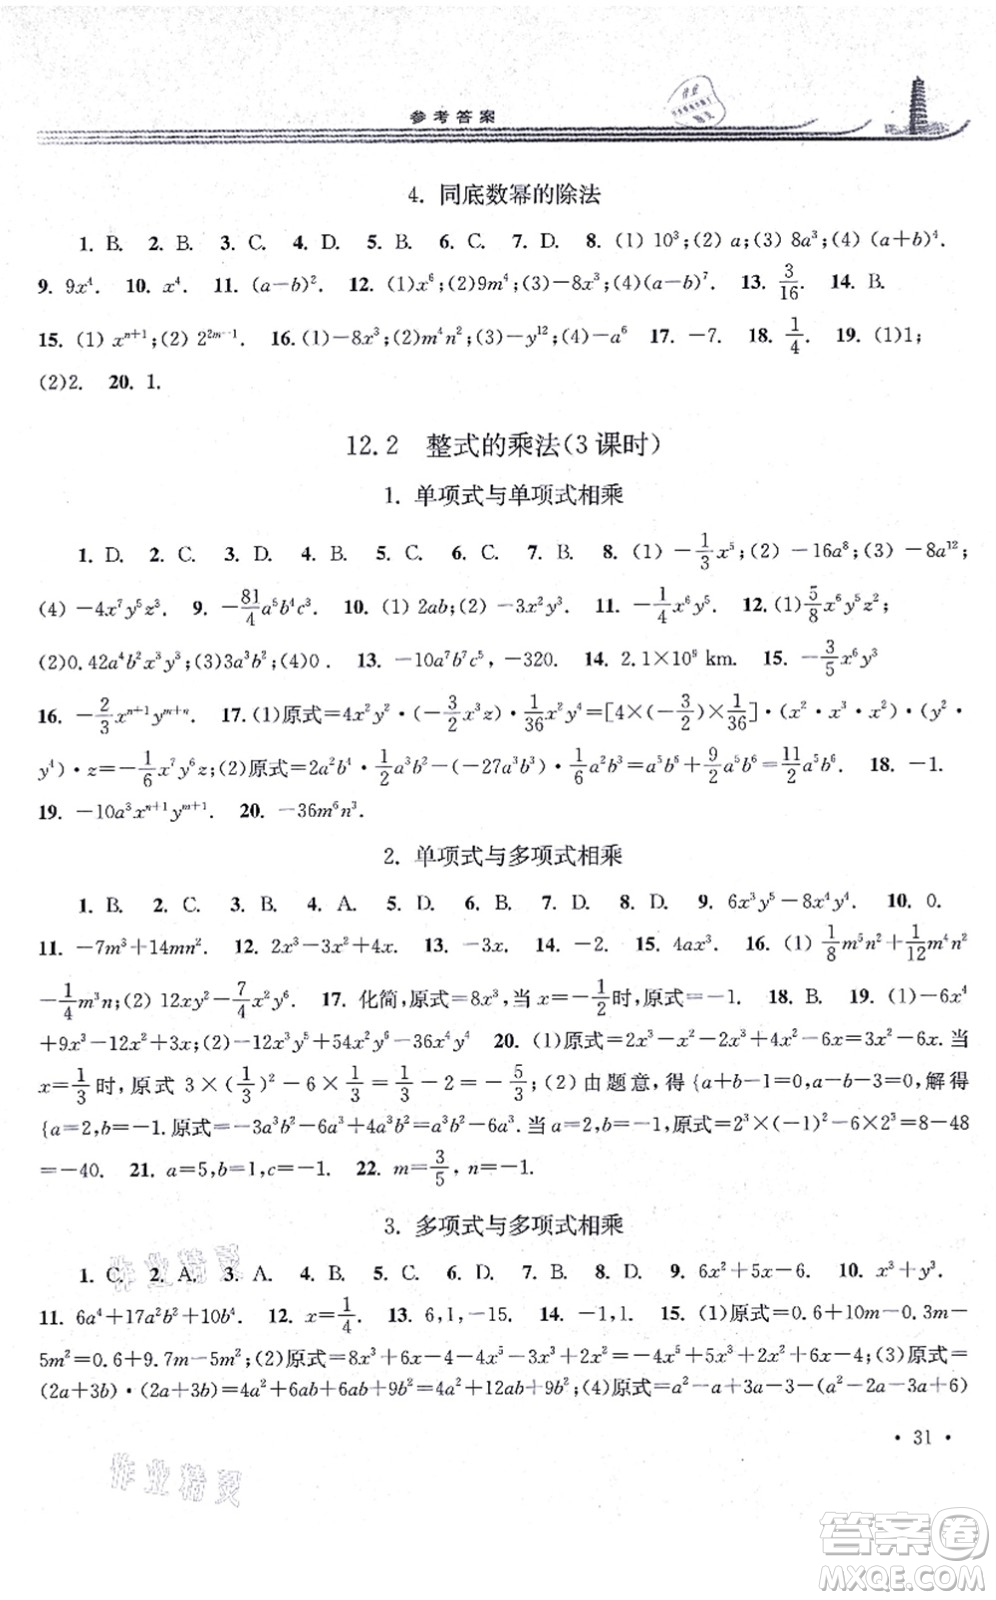 参考答案
4. 同底数幂的除法
1. B. 2. B. 3. C. 4. D. 5. B. 6. C. 7. D. 8. (1) 10³;(2) a;(3) 8a³;(4) (a+b)⁴.
9. 9x⁴. 10. x⁴. 11. (a-b)². 12. (1)x⁶;(2)9m⁴;(3)-8z³;(4)(a-b)⁷. 13. 3/16. 14. B.
15. (1) xⁿ⁺¹;(2) 2²ᵐ⁻¹. 16. (1)-8x³;(2)m⁴n²;(3)-y¹²;(4)-a⁶ 17. -7. 18. 1/4. 19. (1)1;
(2)2. 20. 1.
12.2 整式的乘法(3课时)
1. 单项式与单项式相乘
1. D. 2. C. 3. D. 4. B. 5. C. 6. C. 7. B. 8. (1) -1/3x⁵;(2) -16a⁸;(3) -8a¹²;
(4) -4x⁷y⁵z³. 9. -81/4a⁵b⁴c³. 10. (1) 2ab;(2) -3x²y³. 11. -1/4x⁶y⁵. 12. (1)5/8x⁶y⁵z²;
(2)0.42a⁴b²x³y³;(3)3a³b²;(4)0. 13. -10a⁷b⁷c⁵,-320. 14. 2.1×10⁹ km. 15. -3/5x⁶y³
16. -2/3xⁿ⁺¹yᵐ⁺ⁿ. 17. (1)原式=4x²y²·(-3/2x³z)·1/36x²y⁴=[4×(-3/2)×1/36]·(x²·x³·x²)·(y²·
y⁴)·z=-1/6x⁷y⁶z;(2)原式=2a²b⁴·1/2a³b²-(-27a³b³)·1/6a²b³=a⁵b⁶+9/2a⁵b⁶=11/2a⁵b⁶. 18. -1.
19. -10a³xⁿ⁺¹yᵐ⁺¹. 20. -36m⁶n³.
2. 单项式与多项式相乘
1. B. 2. C. 3. C. 4. A. 5. D. 6. B. 7. D. 8. D. 9. 6x³y⁵-8x⁴y⁴. 10. 0.
11. -7m³+14mn². 12. 2x³-3x²+4x. 13. -3x. 14. -2. 15. 4ax³. 16. (1) 1/8m⁵n²+1/12m⁴n²
-1/4m³n;(2) 12xy²-7/4x²y⁶. 17. 化简,原式=8x³,当x=-1/2时,原式=-1. 18. B. 19. (1)-6x⁴
+9x³-12x²+3x;(2)-12x³y⁵+54x²y⁶-36x⁴y⁴ 20. (1)原式=2x³-x²-2x³+4x²-6x=3x²-6x.当
x=1/3时,原式3×(1/3)²-6×1/3=1/3-2=-5/3;(2)由题意,得{a+b-1=0,a-b-3=0,解得
{a=2,b=-1.原式=-3a³b²-6a³+4a³b²=a³b²-6a³.当a=2,b=-1时,原式=2³×(-1)²-6×2³=8-48
=-40. 21. a=5,b=1,c=-1. 22. m=3/5,n=-1.
3. 多项式与多项式相乘
1. C. 2. A. 3. A. 4. B. 5. C. 6. D. 7. C. 8. B. 9. 6x²+5x-6. 10. x³+y³.
11. 6a⁴+17a²b²+10b⁴. 12. x=1/4. 13. 6,1,-15. 14. -1,1. 15. (1)原式=0.6+10m-0.3m-
5m²=0.6+9.7m-5m²;(2)原式=8x³+6x-4-4x⁵-3x³+2x²=-4x⁵+5x³+2x²+6x-4;(3)原式=
(2a+3b)·(2a+3b)=4a²+6ab+6ab+9b²=4a²+12ab+9b²;(4)原式=a²-a+3a-3-(a²-2a-3a+6)
·31·
作业精灵
作业精灵
答案卷
MXQE.COM